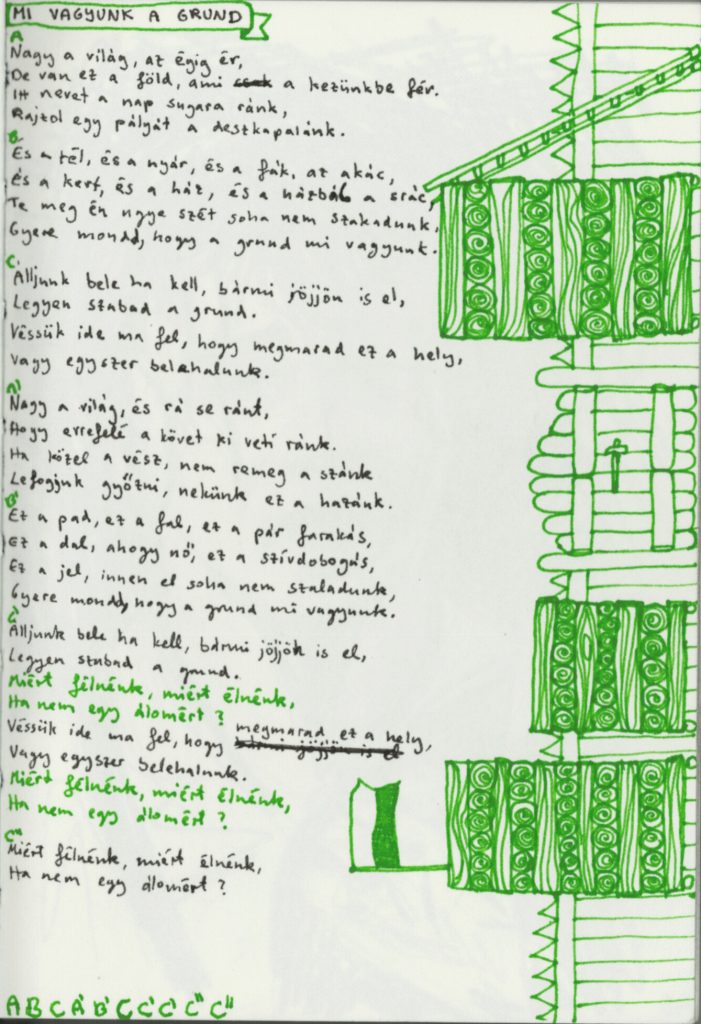 MI VAGYUNK A GRUND
A
Nagy a világ, az égig ér,
De van ez a föld, ami csak a kezünkbe fér.
Itt nevet a nap sugara ránk,
Rajzol egy pályát a deszkapalánk.
B
És a tél, és a nyár, és a fák, az akác,
És a kert, és a ház, és a házból a srác,
Te meg én ugye szét soha nem szakadunk,
Gyere mondd, hogy a grund mi vagyunk.
C
Álljunk bele ha kell, bármi jöjjön is el,
Legyen szabad a grund.
Véssük ide ma fel, hogy megmarad ez a hely,
Vagy egyszer belehalunk.
A'
Nagy a világ, és rá se ránt,
Hogy errefelé a követ ki veti ránk.
Ha közel a vész, nem remeg a szánk
Lefogjuk győzni, nekünk ez a hazánk.
B'
Ez a pad, ez a fal, ez a pár farakás,
Ez a dal, ahogy nő, ez a szívdobogás,
Ez a jel, innen el soha nem szaladunk,
Gyere mondd, hogy a grund mi vagyunk.
C'
Álljunk bele ha kell, bármi jöjjön is el,
Legyen szabad a grund.
Miért félnénk, miért élnénk,
Ha nem egy álomért?
Véssük ide ma fel, hogy megmarad ez a hely,
bármi jöjjön is el
Vagy egyszer belehalunk.
Miért félnénk, miért élnénk,
Ha nem egy álomért?
C"
Miért félnénk, miért élnénk,
Ha nem egy álomért?
A B C A' B' C C' C' C" C"